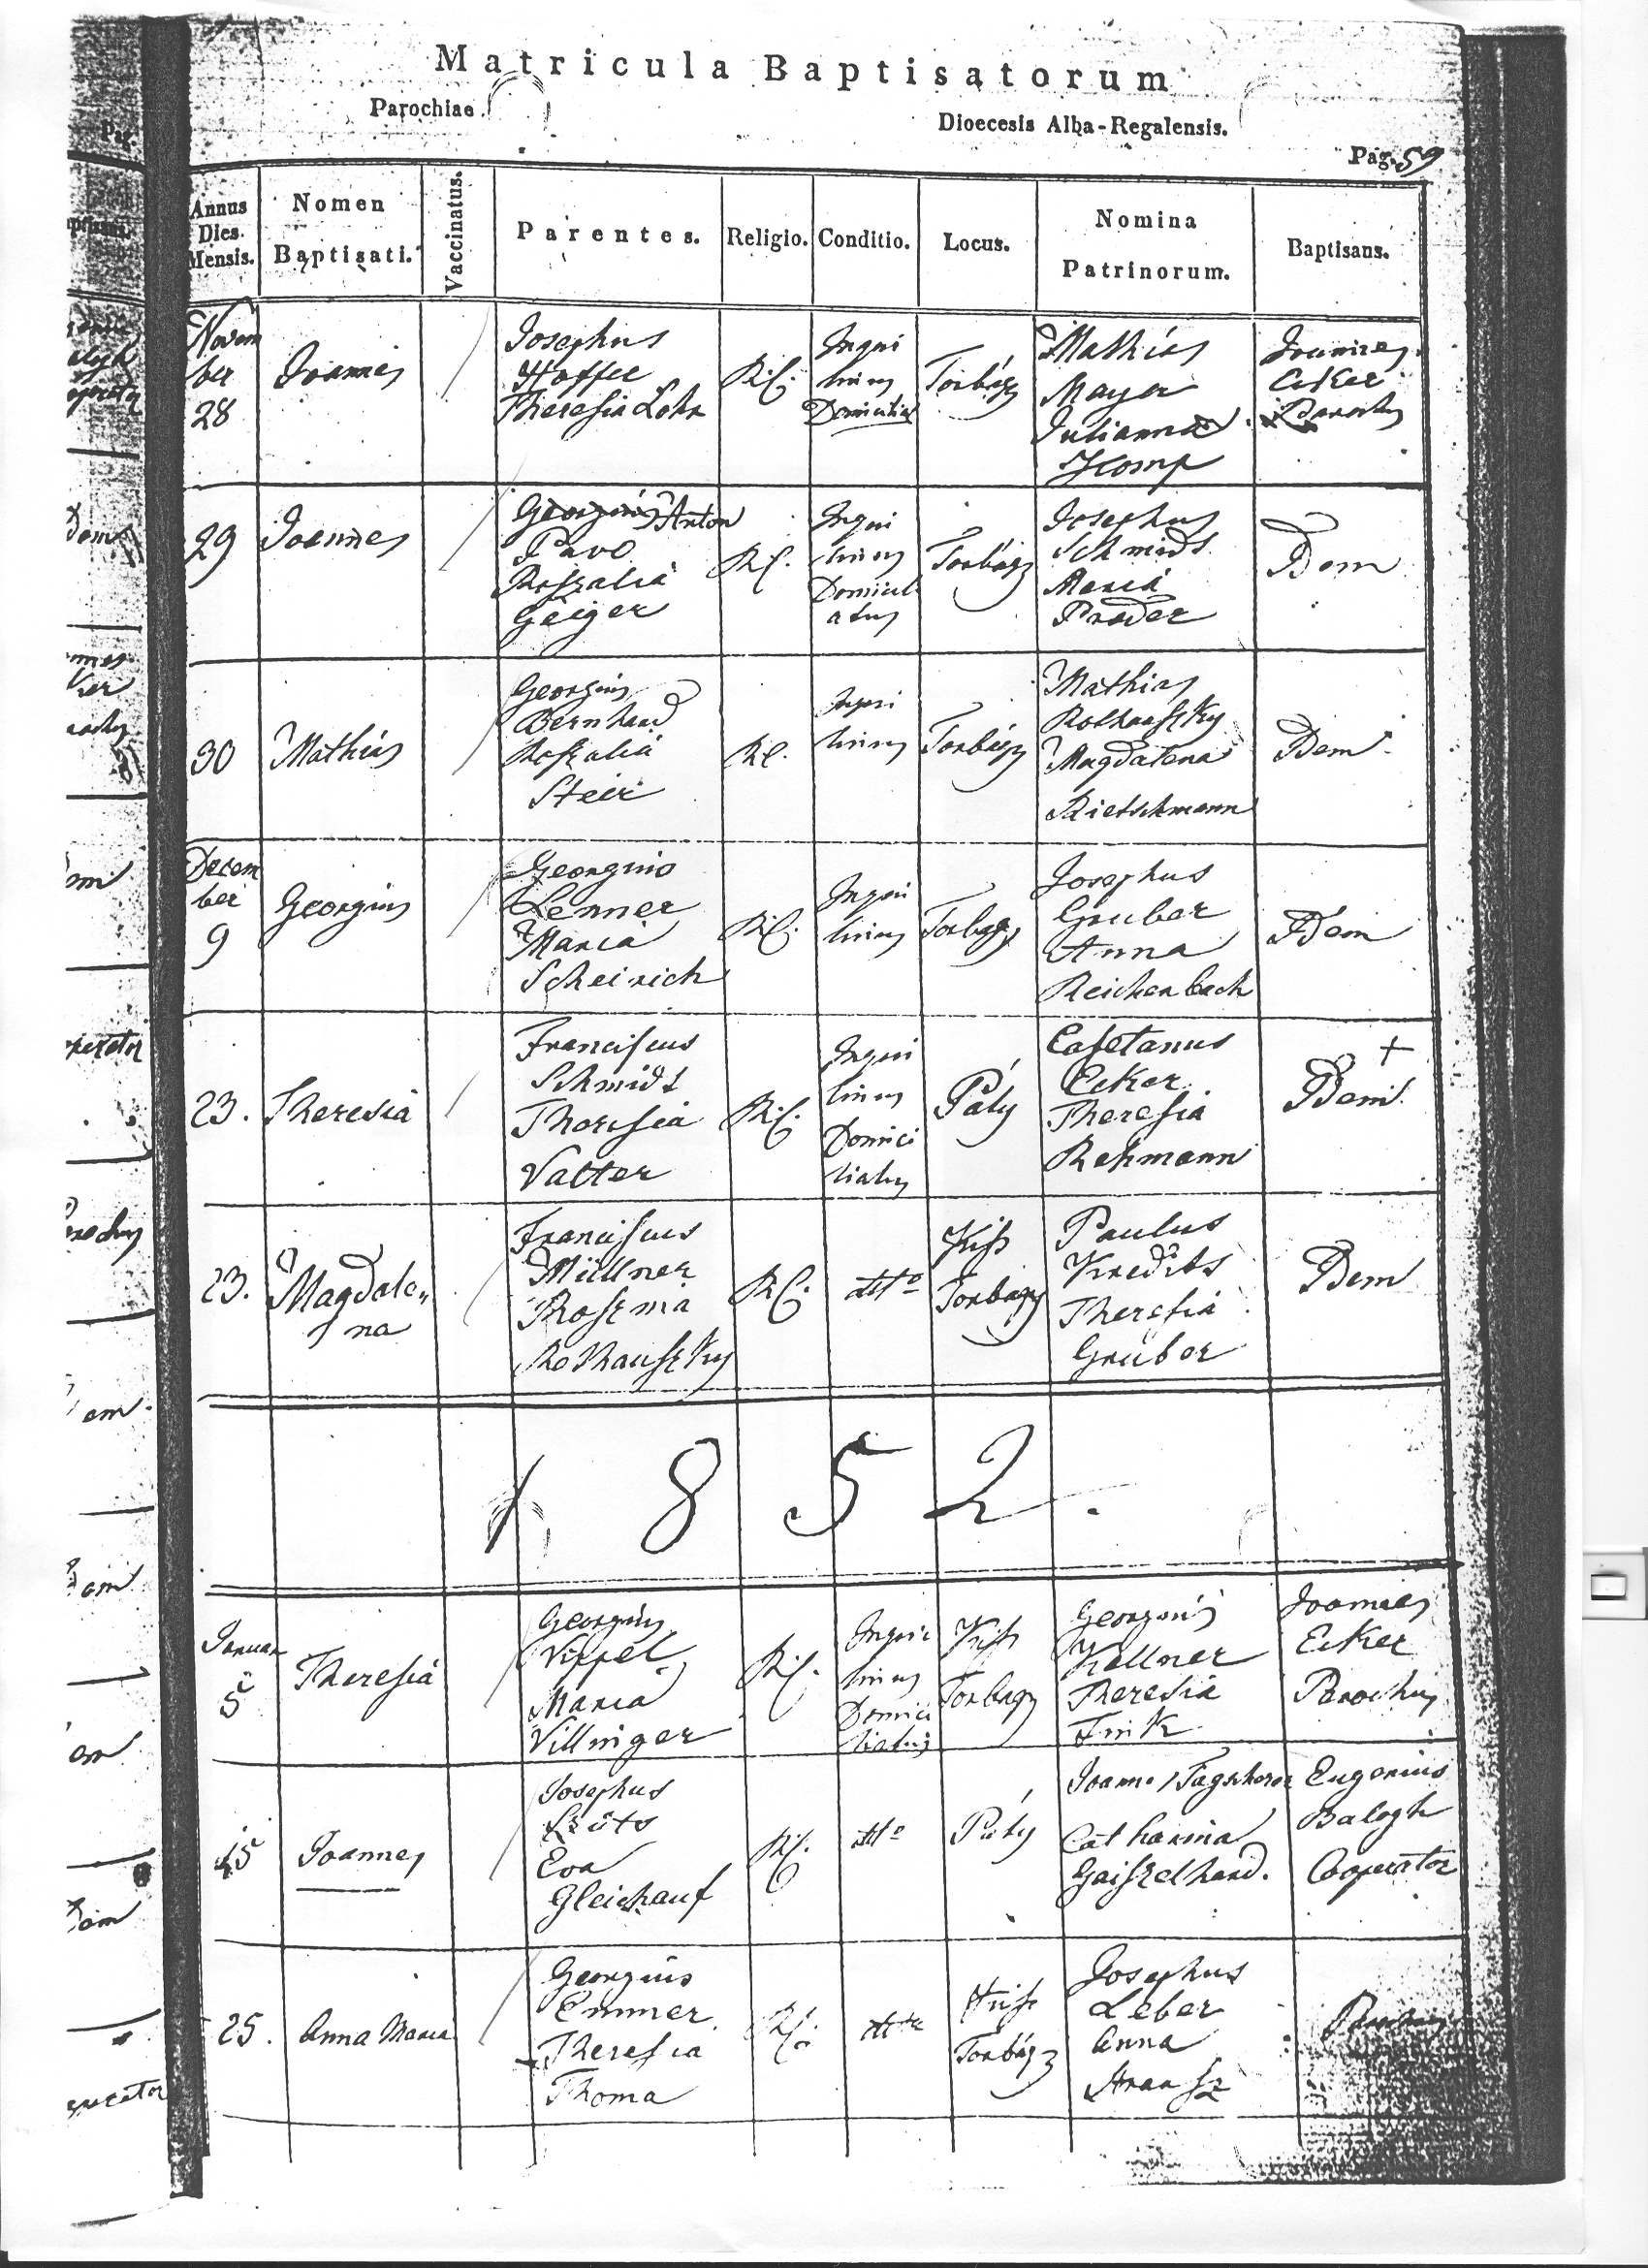 Matricula Baptisatorum
Parochiae
Dioecesis Alba-Regalensis.
Pag. 59
Annus Dies Mensis.
Nomen Baptisati.
Vaccinatus.
Parentes.
Religio.
Conditio.
Locus.
Nomina Patrinorum.
Baptisans.
Novem
ber
28
Joannes
Josephus
Hoffer
Theresia Lohr
R.C.
Inqui
linus
Domicilia
Torbágy
Mathias
Mayer
Julianna
Komp
Joannes
Ecker
Parochus
29
Joannes
Georgius Anton
Pavo
Roszalia
Geiger
R.C.
Inqui
linus
Domicili
atus
Torbágy
Josephus
Schmidt
Maria
Prader
Dem
30
Mathias
Georgius
Bernhard
Roszalia
Steir
R.C.
Inqui
linus
Torbágy
Mathias
Rothauszky
Magdalena
Rietschmann
Dem
Decem
ber
9
Georgius
Georgius
Lenner
Maria
Scheirich
R.C.
Inqui
linus
Torbagy
Josephus
Gruber
Anna
Reichenbach
Dem
23.
Theresia
Franciscus
Schmidt
Theresia
Valter
R.C.
Inqui
linus
Domici
liatus
Páty
Cajetanus
Ecker
Theresia
Rehmann
Dem
23.
Magdale„
na
Franciscus
Müllner
Rosznia
Rothauszky
R.C.
dtto
Kiss
Torbagy
Paulus
Kredits
Theresia
Gruber
Dem
1852.
Januar
5
Theresia
Georgius
Vippel
Maria
Villinger
R.C.
Inqui
linus
Domici
liatus
Kiss
Torbagy
Georgius
Kellner
Theresia
Fink
Joannes
Ecker
Parochus
15
Joannes
Josephus
Eva
Gleichauf
R.C.
dtto
Páty
Joannes Tagscherer
Catharina
Gaiszelhard.
Eugenius
Balogh
Cooperator
25.
Anna Maria
Georgius
Emmer
Theresia
Thoma
R.C.
dtto
Kiss
Torbágy
Josephus
Leber
Anna
Parochus